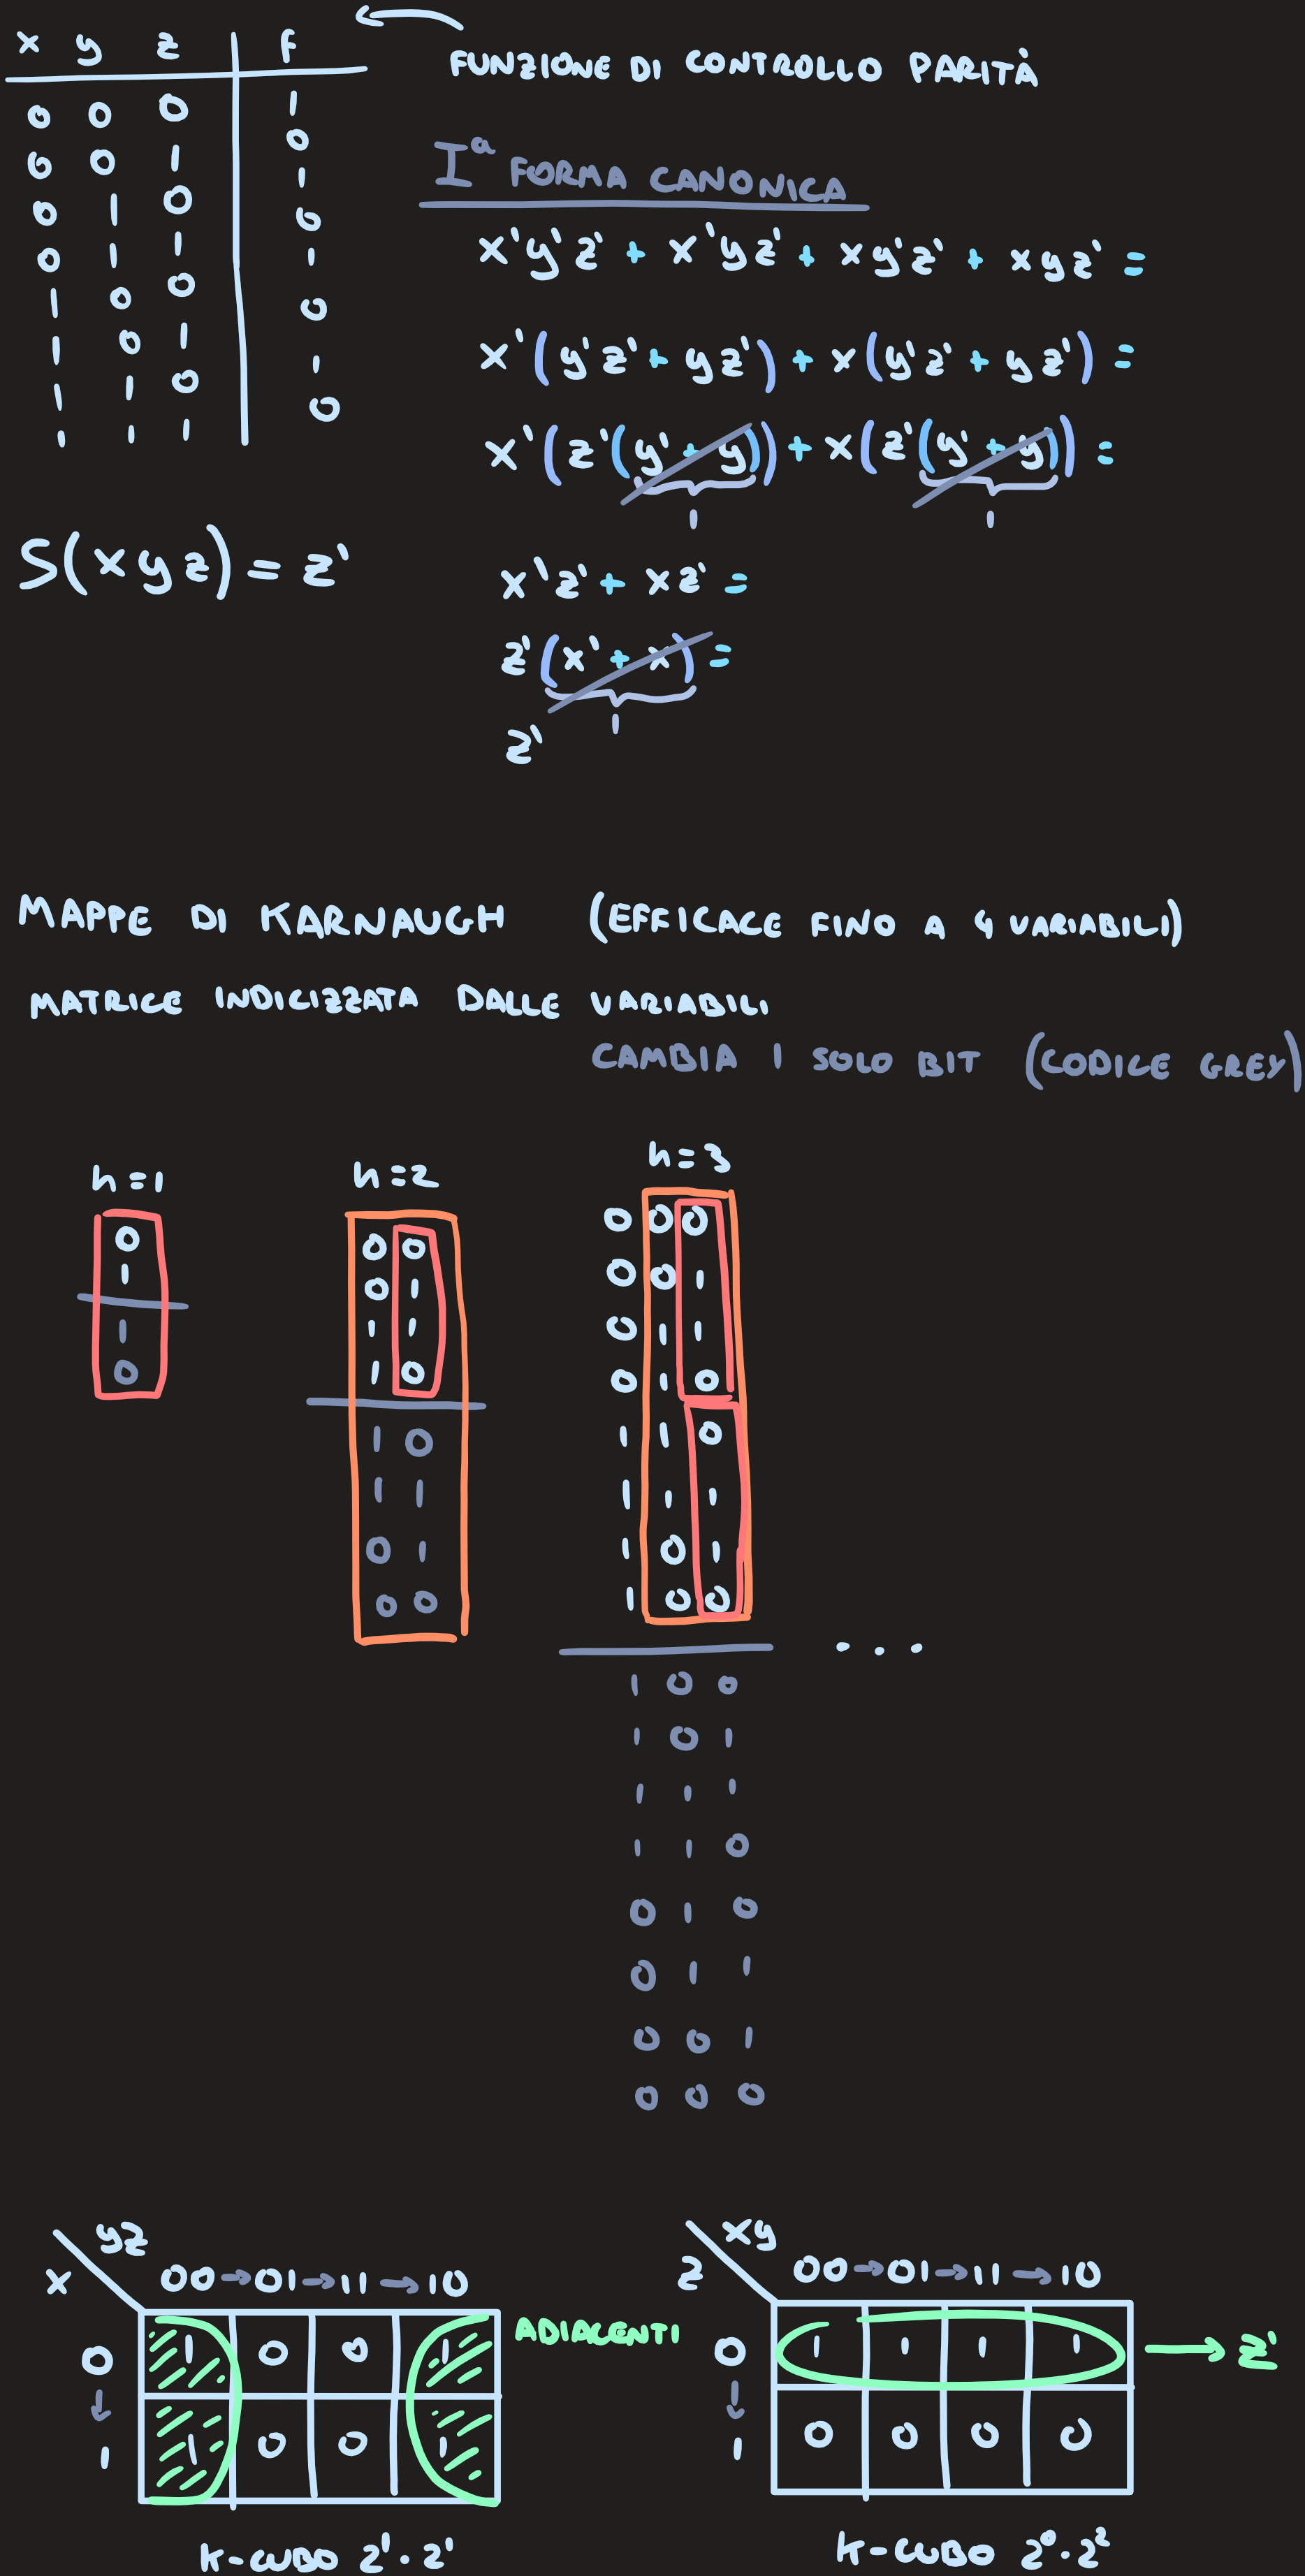 x y z f
FUNZIONE DI CONTROLLO PARITÀ
0 0 0 1
0 0 1 0
0 1 0 1
0 1 1 0
1 0 0 1
1 0 1 0
1 1 0 1
1 1 1 0
Iª FORMA CANONICA
x'y'z' + x'yz' + xy'z' + xyz' =
x'(y'z' + yz') + x(y'z' + yz') =
x'(z'(y' + y)) + x(z'(y' + y)) =
1 1
x'z' + xz' =
z'(x' + x) =
1
z'
S(xyz) = z'
MAPPE DI KARNAUGH (EFFICACE FINO A 4 VARIABILI)
MATRICE INDICIZZATA DALLE VARIABILI
CAMBIA 1 SOLO BIT (CODICE GREY)
h=1
0
1
1
0
h=2
0 0
0 1
1 1
1 0
1 0
1 1
0 1
0 0
h=3
0 0 0
0 0 1
0 1 1
0 1 0
1 1 0
1 1 1
1 0 1
1 0 0
...
1 0 0
1 0 1
1 1 1
1 1 0
0 1 0
0 1 1
0 0 1
0 0 0
yz
x 00→01→11→10
0 1 0 0 1
↓
1 1 0 0 1
ADIACENTI
K-CUBO 2¹·2¹
xy
z 00→01→11→10
0 1 1 1 1 → z'
↓
1 0 0 0 0
K-CUBO 2⁰·2²